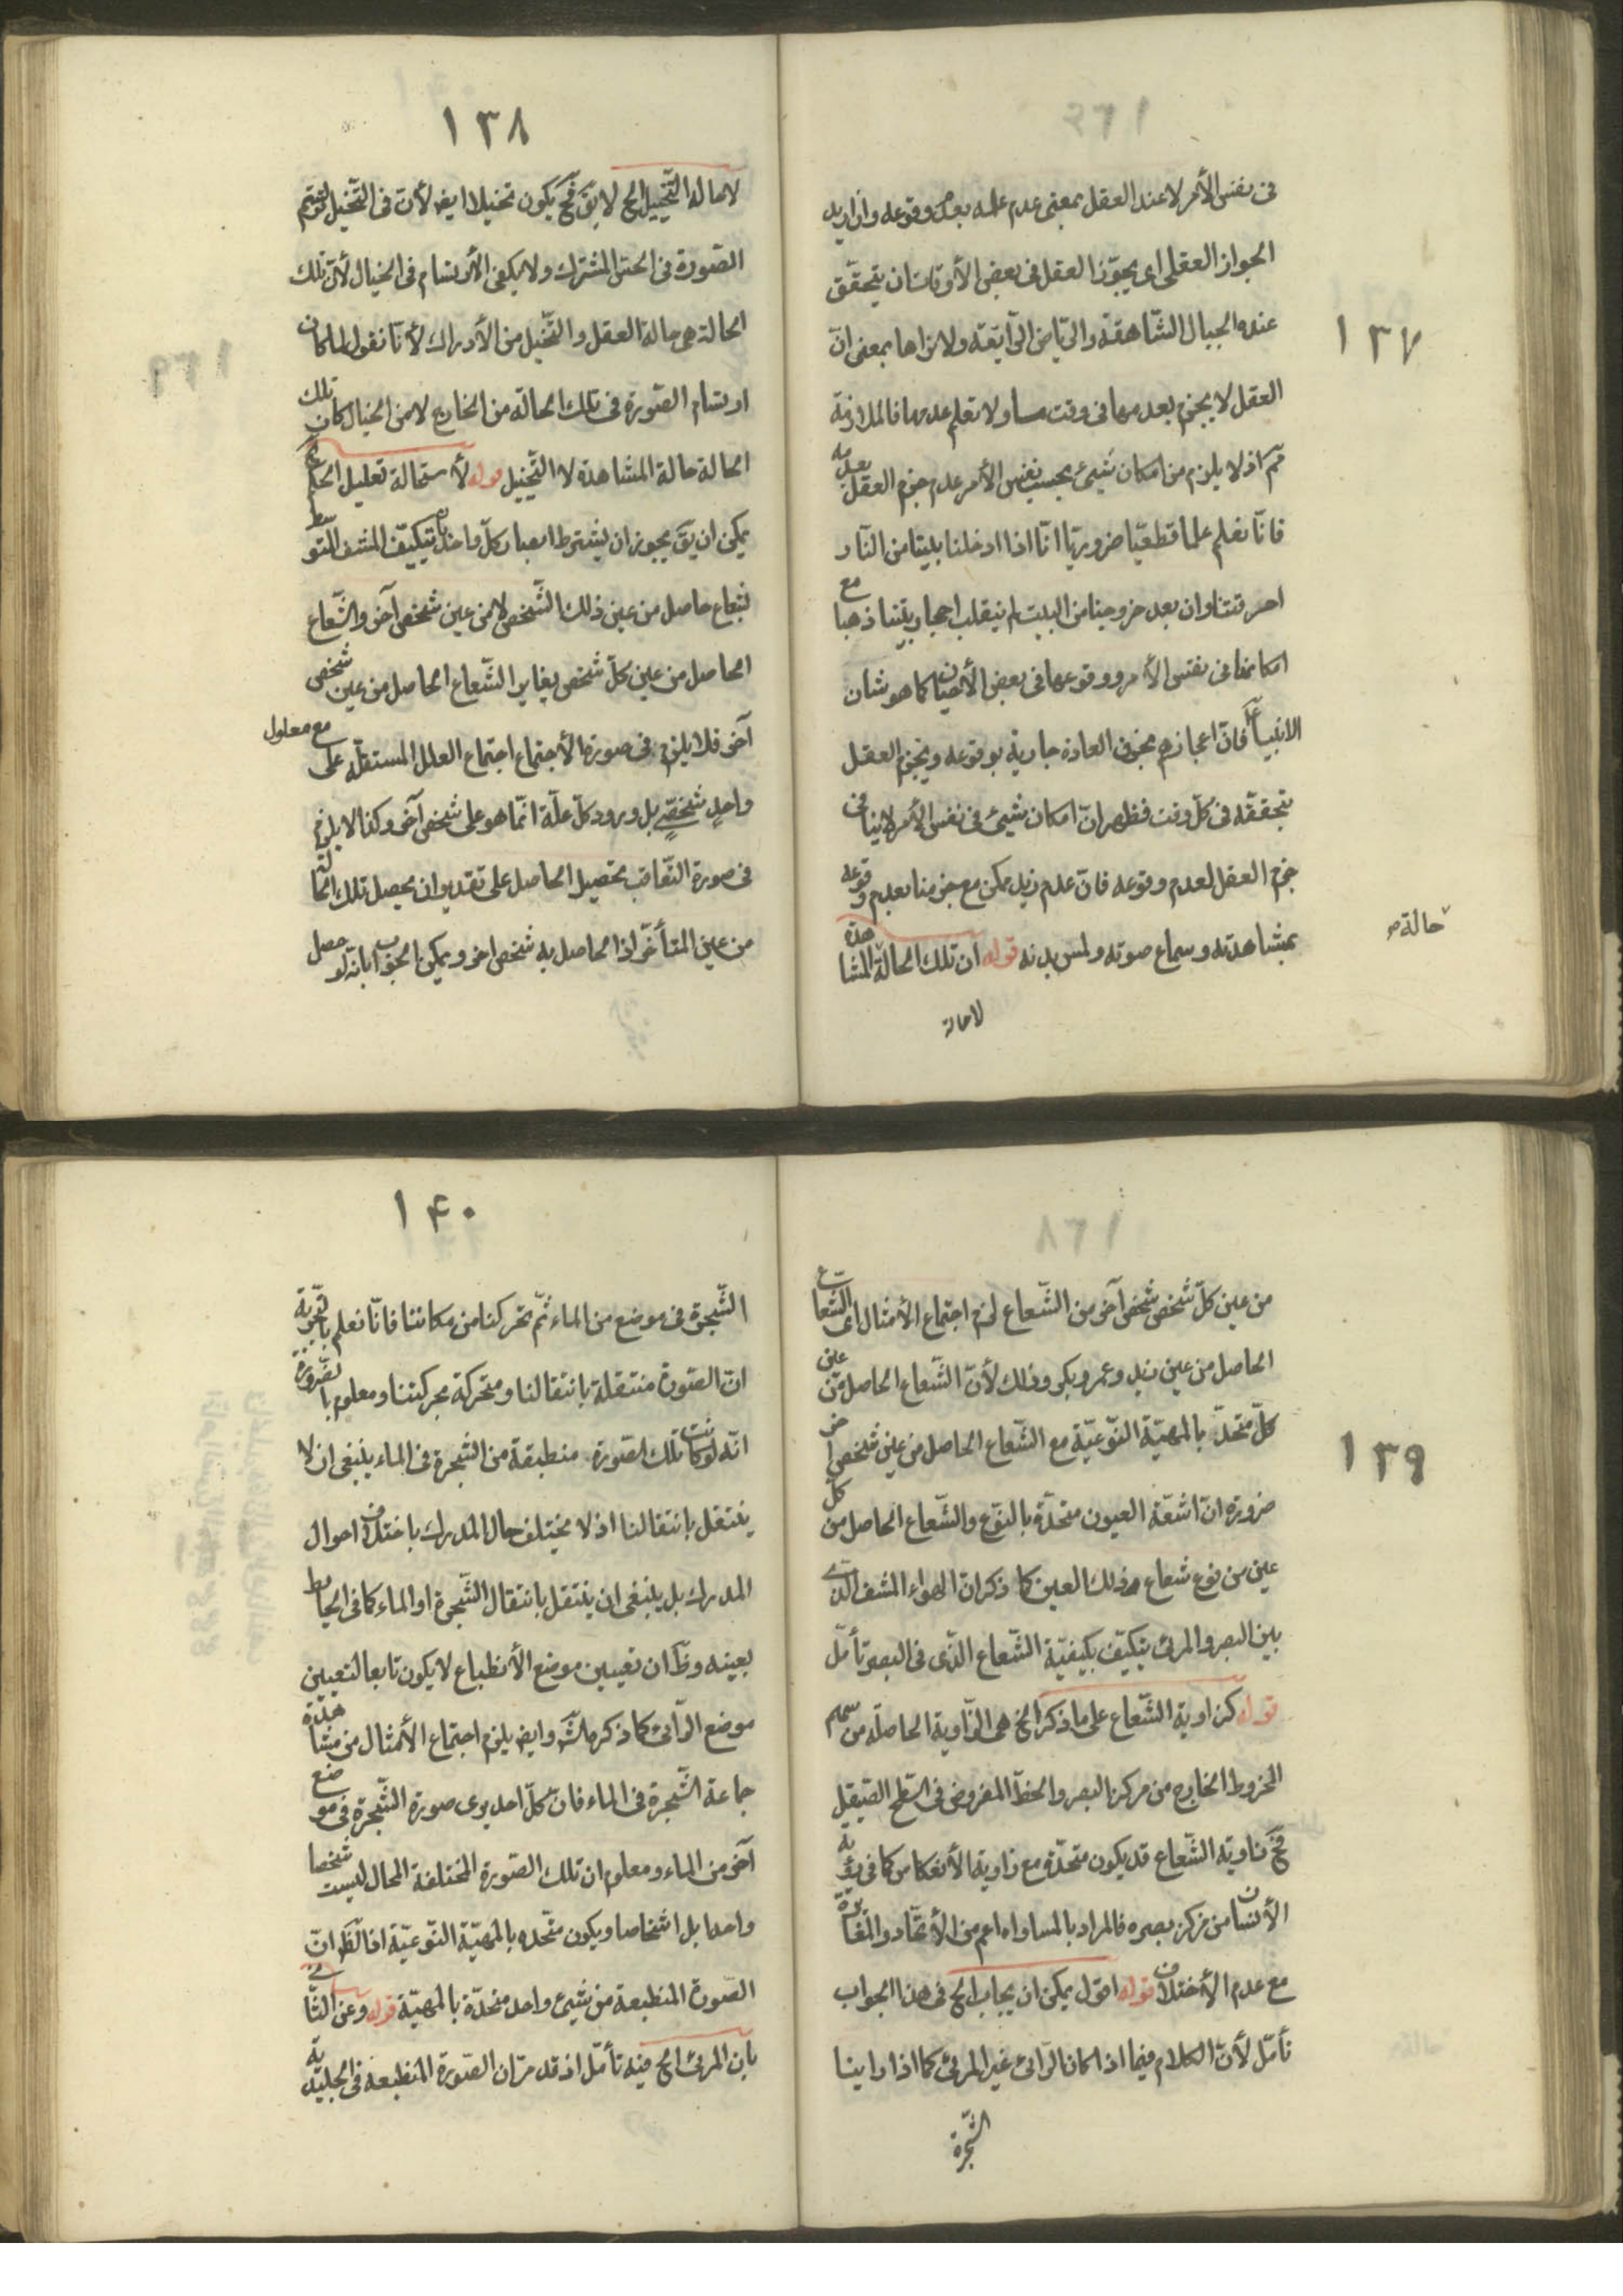 ١٣٧
فى نفس الأمر لا عند العقل بمعنى عدم علمه بعدم وقوعه وان اريد
الجواز العقلى اى يجوّز العقل فى بعض الأوقات ان يتحقّق
عنده الجبال الشّاهقة والرّياض الرّايقة ولا نراها بمعنى انّ
العقل لا يجزم بعدمها فى وقت ما ولا تعلم عدمها فالملازمة
ثم اذ لا يلزم من امكان شيئ بحسب نفس الأمر عدم جزم العقل بعدمه
فانّا نعلم علما قطعيّا ضروريّا انّا اذا ادخلنا بيتا من النّار
احرقتنا وان بعد خروجنا من البيت لم ينقلب احجار بيتنا ذهبا مع
امكانها فى نفس الأمر ووقوعها فى بعض الأحيان كما هو شان
الانبياء فانّ اعجازهم مجوز فى العادة جارية بوقوعه ويجزم العقل
بتحققه فى كلّ وقت فظهر انّ امكان شيئ فى نفس الأمر لا ينافى
جزم العقل لعدم وقوعه فانّ عدم زيد ممكن مع جزمنا بعدم وقوعه
بمشاهدته وسماع صوته ولمس بدنه قوله ان تلك الحالة المشاهدة
حالة
لا حالة
١٣٨
لا حالة التّخييل الخ لا يق فح يكون تخيلا ايض لأن فى التّخيل يرتسم
الصّورة فى الحسّ المشترك ولا يكفى الأرتسام فى الخيال لأنّ تلك
الحالة هى حالة العقل والتّخيل من الأدراك لأنّا نقول لما كان
ارتسام الصّورة فى تلك الحالة من الخارج لا من الخيال كان تلك
الحالة حالة المشاهدة لا التّخيّل قوله لأستحالة تعليل الخ
يمكن ان يق يجوز ان يشترط ابصار كلّ واحد بتكيّف المشف المتوسط
بشعاع حاصل من عين ذلك الشّخص لا من عين شخص آخر والشّعاع
الحاصل من عين كلّ شخص يغاير الشّعاع الحاصل من عين شخص
آخر فلا يلزم فى صورة الأجتماع اجتماع العلل المستقلّة على معلول
واحد شخصىّ بل ورود كلّ علّة انّما هو على شخص آخر وكذا لا يلزم
فى صورة التّعاقب تحصيل الحاصل على تقدير ان يحصل تلك الحالة
من عين المتأخّر اذ الحاصل به شخص اخر ويمكن الجواب بانه لو حصل
١٣٩
من عين كلّ شخص شخص آخر من الشّعاع لزم اجتماع الأمثال اى الشّعاع
الحاصل من عين زيد وعمرو بكر وذلك لأنّ الشّعاع الحاصل من عين
كلّ متّحد بالمهيّة النّوعيّة مع الشّعاع الحاصل من عين شخص اخر
ضرورة انّ اشعّة العيون متحدّة بالنوع والشّعاع الحاصل من كلّ
عين من نوع شعاع ذلك العين كما ذكر انّ الهواء المشف الّذى
بين البصر والمرئى يتكيّف بكيفيّة الشّعاع الّذى فى البصر تأمّل
قوله كزاوية الشّعاع على ما ذكر الخ هى الزّاوية الحاصلة من سهم
المخروط الخارج من مركز البصر والخطّ المفروض فى السّطح الصّيقل
فح زاوية الشّعاع قد يكون متحدّة مع زاوية الأنعكاس كما فى رؤية
الأنسان مركز بصره فالمراد بالمساواه اعم من الأتّحاد والمغايرة
مع عدم الأختلاف قوله اقول يمكن ان يجاب الخ فى هذا الجواب
تأمّل لأنّ الكلام فيما اذا كان الرّائى غير المرئى كما اذا راينا
الشّجرة
١۴٠
الشّجرة فى موضع من الماء ثمّ تحركنا من مكاننا فانّا نعلم بالتّجربة
انّ الصّورة منتقلة بانتقالنا ومتحركة بحركتنا ومعلوم بالضّرورة
انّه لو كانت تلك الصّورة منطبقة من الشّجرة فى الماء ينبغى ان لا
ينتقل بانتقالنا اذ لا يختلف حال المدرك باختلاف احوال
المدرك بل ينبغى ان ينتقل بانتقال الشّجرة او الماء كما فى الحايط
بعينه وظ ان تعيين موضع الأنطباع لا يكون تابعا لتعيين
موضع الرّائى كما ذكره الش وايض يلزم اجتماع الأمثال من مشاهدة
جماعة الشّجرة فى الماء فانّ كلّ احد يرى صورة الشّجرة فى موضع
آخر من الماء ومعلوم ان تلك الصّورة المختلفة المحال ليست شخصا
واحدا بل اشخاصا ويكون متّحده بالمهيّة النّوعيّة اذ الظ انّ
الصّورة المنطبعة من شيئ واحد متحدّة بالمهيّة قوله وعن الثّانى
بان المرئى الخ فيه تأمّل اذ قد مرّ ان الصّورة المنطبعة فى الجليديّة